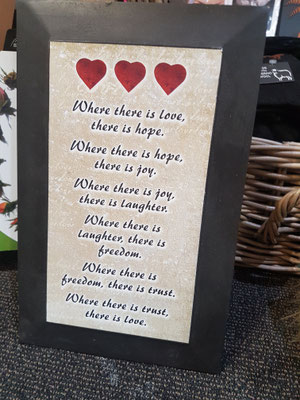 Where there is love,
there is hope.
Where there is hope,
there is joy.
Where there is joy,
there is laughter.
Where there is
laughter, there is
freedom.
Where there is
freedom, there is trust.
Where there is trust,
there is love.